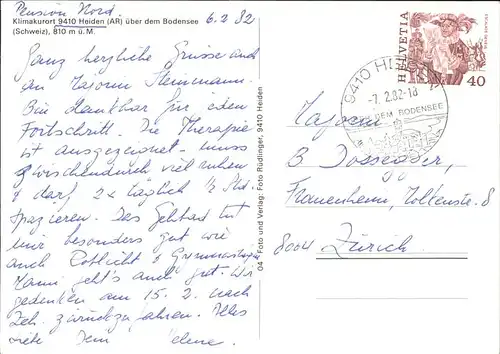 Pension Nord.
6.2.82
Klimakurort 9410 Heiden (AR) über dem Bodensee
(Schweiz), 810 m ü. M.
Ganz herzliche Grüsse auch
an Majorin
Bin dankbar für jeden
Fortschritt. Die Therapie
ist ausgezeichnet - muss
zwischendurch viel ruhen
& darf 2x täglich ½ Std.
spazieren. Das tut
mir besonders gut wie
auch Rotlicht &
geht's auch gut. Wir
gedenken am 15.2. nach
Zch. zurückzufahren. Alles
04 Foto und Verlag: Foto Rüdlinger, 9410 Heiden
HELVETIA
40
9410 HEIDEN
-7.2.82-18
ÜBER DEM BODENSEE
Majorin
B
Frauenheim, 8
8004 Zürich